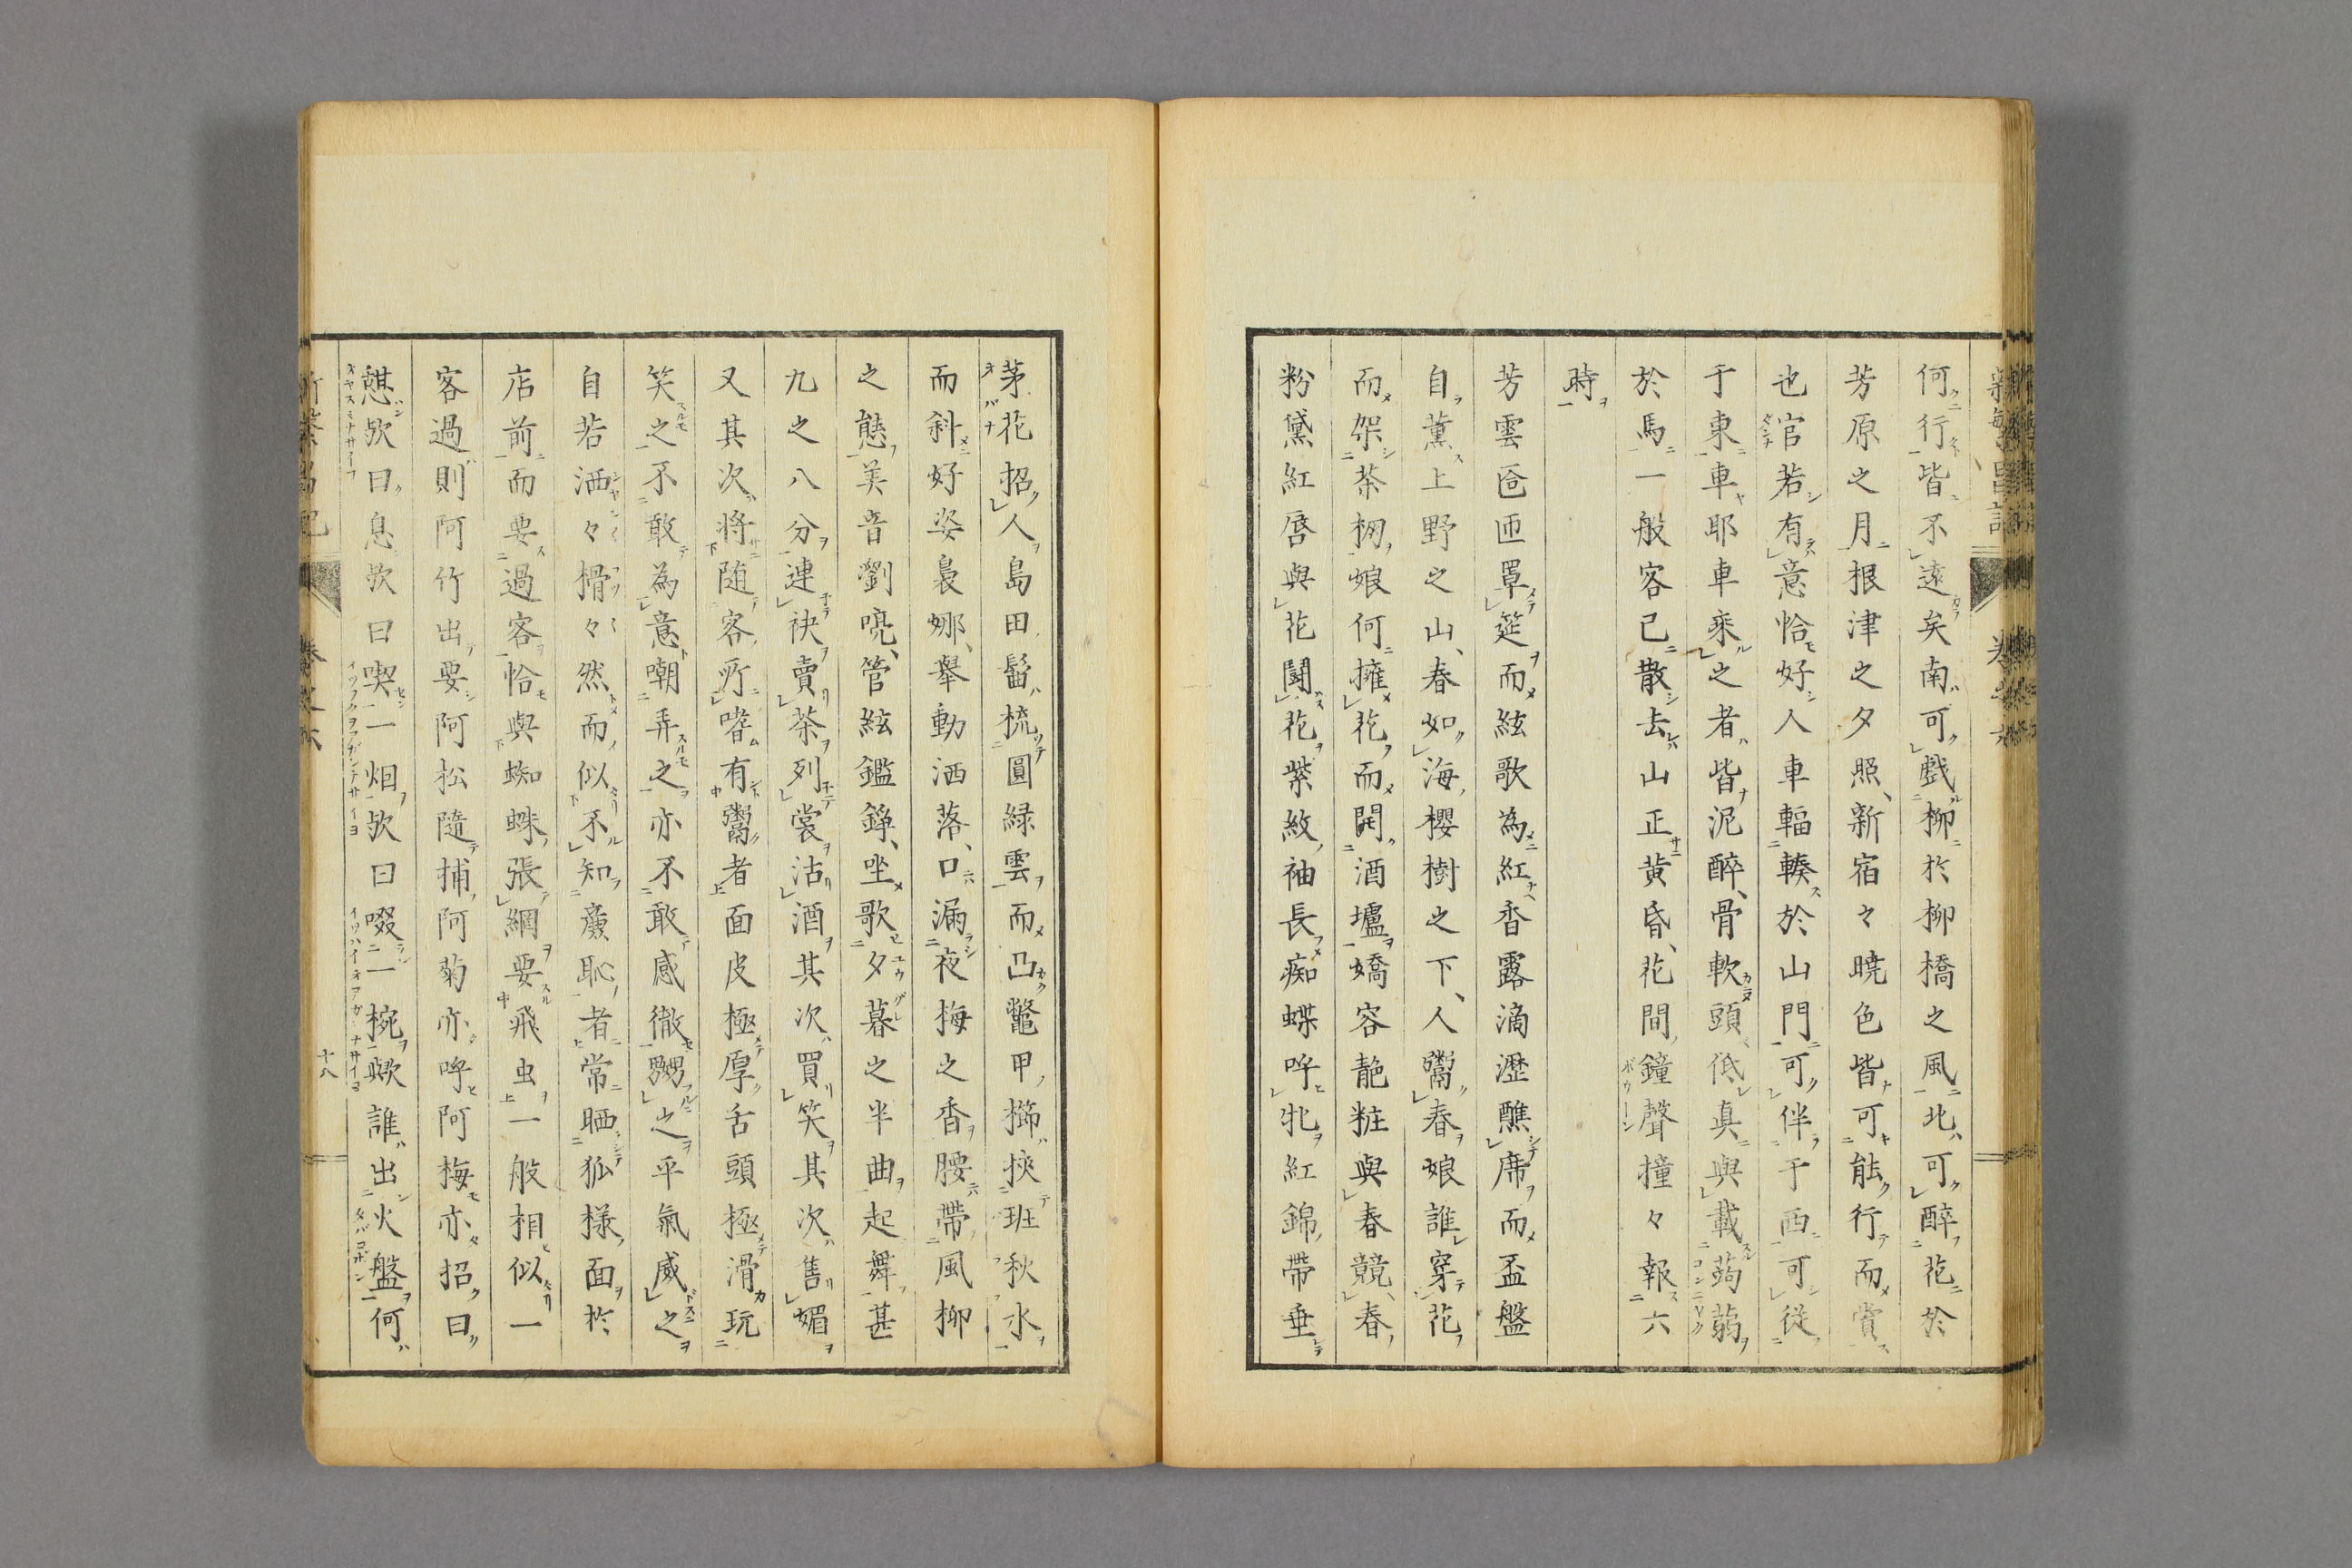 何行皆不遠矣南可戲柳於柳橋之風北可醉花於
芳原之月根津之夕照新宿之曉色皆可能行而賞
也官若有意恰好人車輻輳於山門可伴于西可從
于東車耶車乘之者皆泥醉骨軟頭低真與載蒟蒻
於馬一般客已散去山正黃昏花間鐘聲撞々報六
時
芳雲匼匝罩筵而絃歌為紅香露滴瀝醮席而盃盤
自薰上野之山春如海櫻樹之下人鬻春娘誰穿花
而架茶棚娘何擁花而開酒壚嬌容靘粧與春競春
粉黛紅唇與花鬪花紫紋袖長痴蝶呼牝紅錦帶垂
茅花招人島田髷梳圓緑雲而凸鼈甲櫛挾班秋水
而斜好姿裊娜舉動洒落口漏夜梅之香腰帶風柳
之態美音劉喨管絃鑑錚坐歌夕暮之半曲起舞甚
九之八分連袂賣茶列裳沽酒其次買笑其次售媚
又其次將随客所嗜有鬻者面皮極厚舌頭極滑玩
笑之不敢為意嘲弄之亦不敢感徹嬲之平氣威之
自若洒々榾々然而似不知廉恥者常晒狐樣面於
店前而要過客恰與蜘蛛張網要飛虫一般相似一
客過則阿竹出要阿松隨捕阿菊亦呼阿梅亦招曰
憇歟曰息歟曰喫一烟歟曰啜一椀歟誰出火盤何
十八